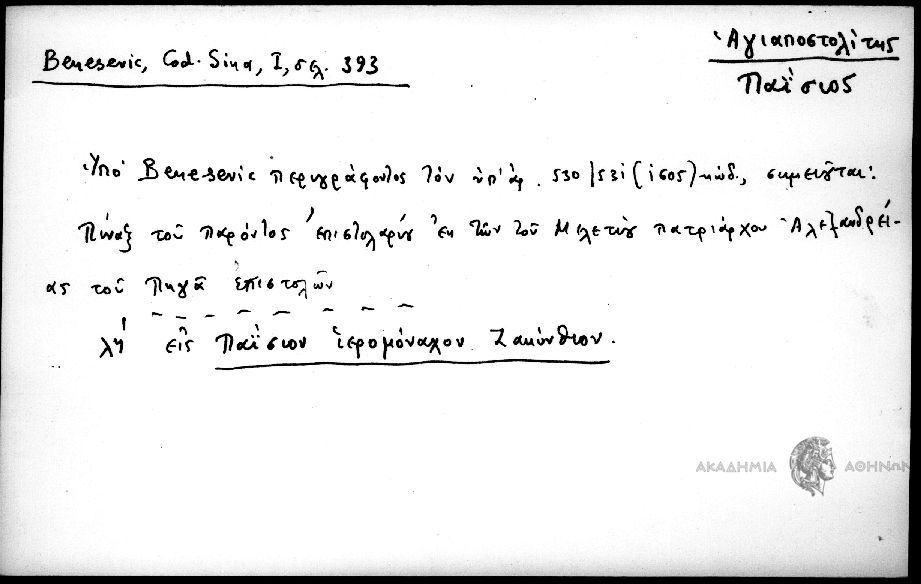 Benesevic, Cod. Sina, I, σελ. 393
Ἁγιαποστολίτης
Παΐσιος
Ὑπό Benesevic περιγράφοντος τόν ὑπ' ἀρ. 530/531 (1505) κώδ., σημειοῦται:
Πίναξ τοῦ παρόντος ἐπιστολαρίου ἐκ τῶν τοῦ Μελετίου πατριάρχου Ἀλεξανδρεί-
ας τοῦ Πηγᾶ ἐπιστολῶν
λη' εἰς Παΐσιον ἱερομόναχον Ζακύνθιον.
ΑΚΑΔΗΜΙΑ ΑΘΗΝΩΝ